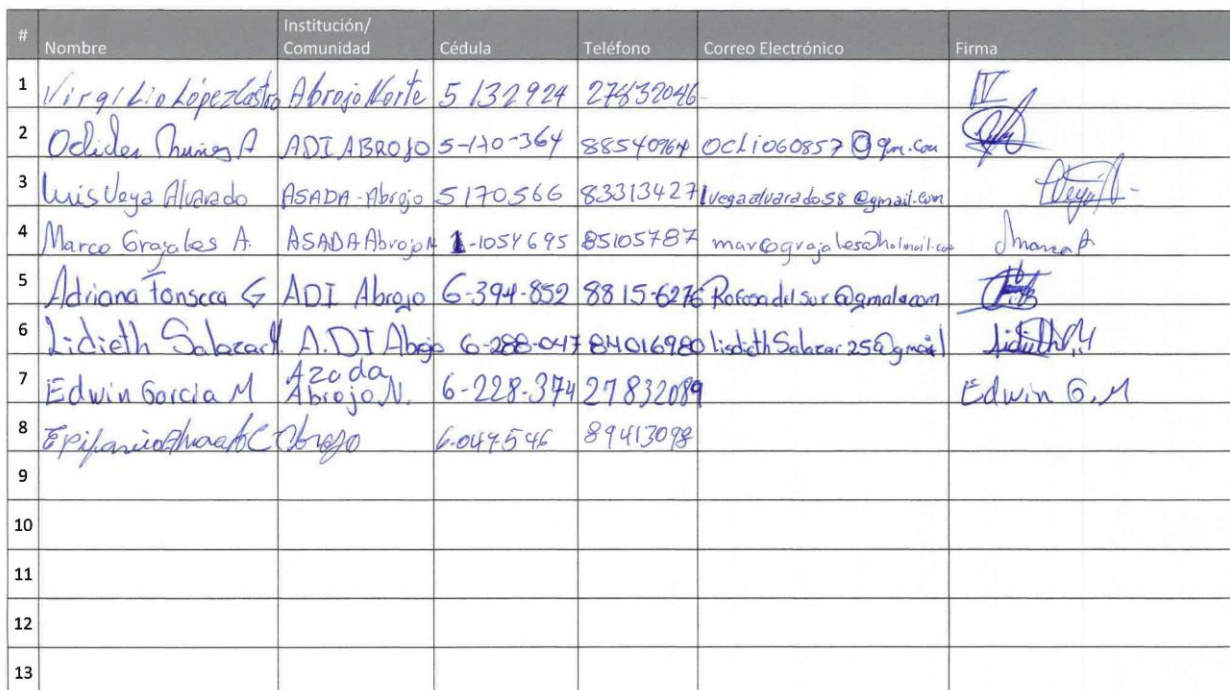 # Nombre Institución/ Comunidad Cédula Teléfono Correo Electrónico Firma
1 Virgilio López Castro Abrojo Norte 5 132924 27832046
2 Oclides A ADI ABROJO 5-170-364 88540964 Oclio60857@gm.com
3 Luis Vega Alvarado ASADA-Abrojo 5170566 83313427 lvegaalvarado58@gmail.com
4 Marco Grajales A. ASADA Abrojo N 1-1054695 85105787 marcograjales@hotmail.com
5 Adriana Fonseca G ADI Abrojo 6-394-852 8815-6276
6 Lidieth Salazar A.DI Abrojo 6-288-047 84016980 lisdiethSalazar25@gmail
7 Edwin Garcia M Azada Abrojo N. 6-228-374 27832089 Edwin G.M
8 Abrojo 6-049546 89413098
9
10
11
12
13